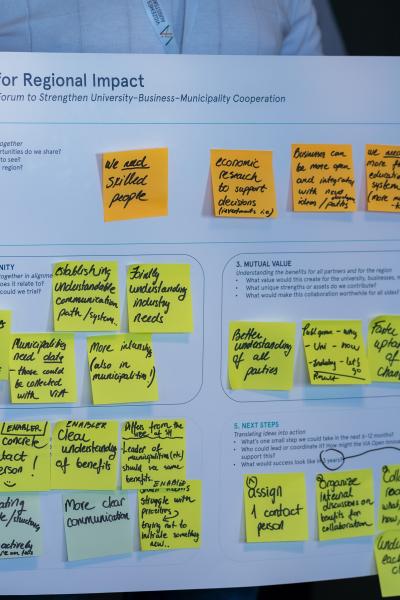 for Regional Impact
Forum to Strengthen University–Business–Municipality Cooperation
ogether
ortunities do we share?
to see?
region?
we need
skilled
people
economic
research
to support
decisions
(investments i.e)
Businesses can
be more open
and integrating
with new
ideas /
we need
more
educatio
system
(more
NITY
together in alignme
does it relate to?
could we trial?
Establishing
understandable
communication
path / system..
Jointly
understanding
industry
needs
Municipalities
need data
those could
be collected
with ViA
More internships
(also in
municipalities!)
3. MUTUAL VALUE
Understanding the benefits for all partners and for the region
• What value would this create for the university, businesses, m
• What unique strengths or assets do we contribute?
• What would make this collaboration worthwhile for all sides?
Better
understanding
of all
parties
- Uni - how
- Industry - let's
go
Result
Faster
uptake
of
chan
ENABLER
concrete
tact
erson !
ENABLER
Clear
understanding
of benefits
Offers from the
-Leader of
municipalities (etc)
should
same
benefits.
ating
actively
More clear
communication
ENABLE
struggle with
priorities
trying not to
initiate something
new..
5. NEXT STEPS
Translating ideas into action
• What's one small step we could take in the next 6–12 months?
• Who could lead or coordinate it? How might the ViA Open Innova
support this?
• What would success look like in years?
assign
1 contact
person
Organize
internal
discussions on
benefits for
collaboration
Coll
und
each